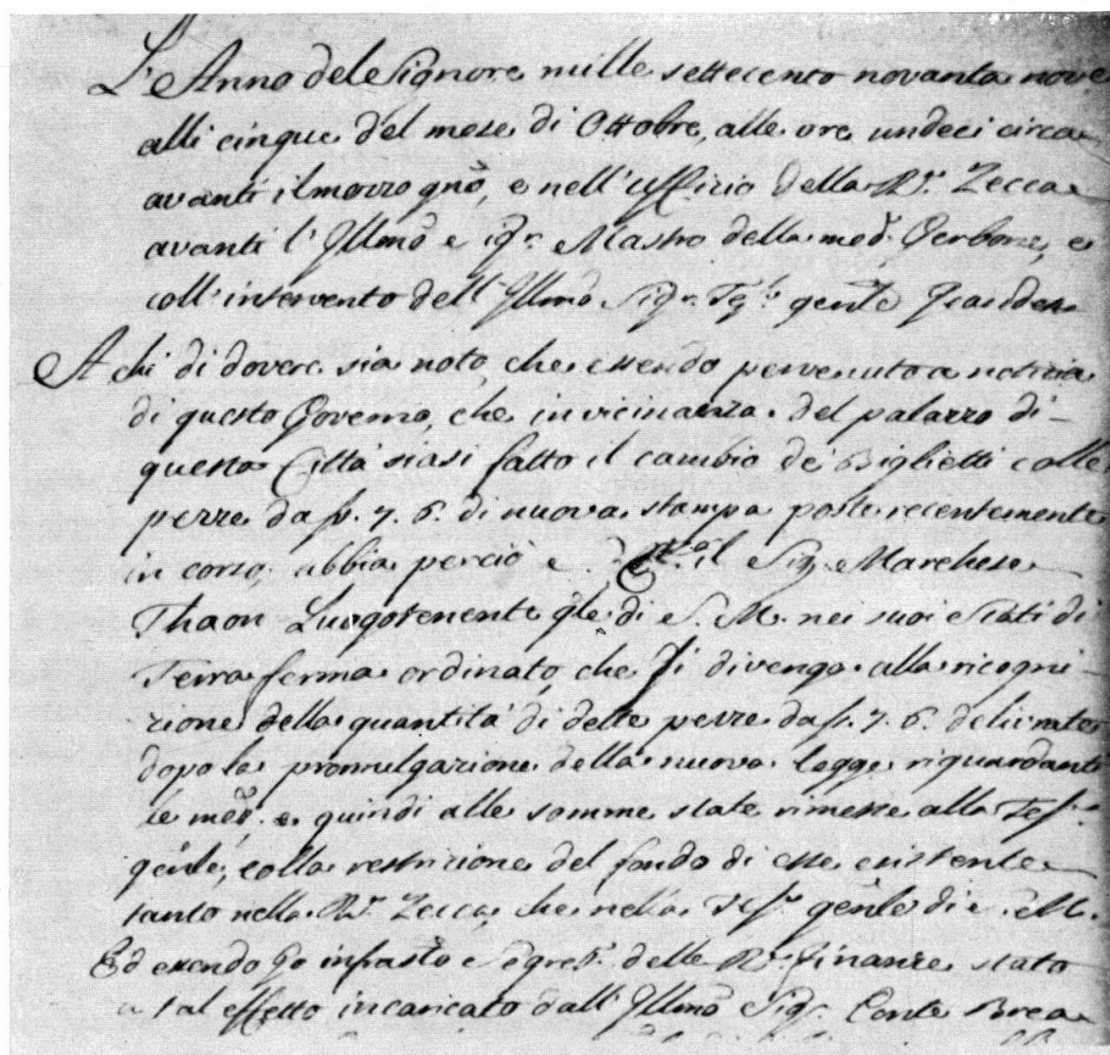 L'Anno del Signore mille settecento novanta nove
alli cinque del mese di Ottobre, alle ore undeci circa
avanti il mezzo gno, e nell'Uffizio della Ra. Zecca
avanti l'Illmo Sigr. Mastro della med. e
coll'intervento dell'Illmo Sigr. gente
A chi di dovere sia noto, che essendo pervenuto a notizia
di questo Governo, che in vicinanza del palazzo di
questa Città siasi fatto il cambio de' Biglietti colle
pezze da 7. 6. di nuova stampa poste recentemente
in corso, abbia perciò il Sig. Marchese
Thaon Luogotenente gle di S. M. nei suoi Stati di
Terra ferma ordinato, che si divenga alla ricogni-
zione della quantità di dette pezze da 7. 6. deliverate
dopo la promulgazione della nuova legge riguardante
le med. e quindi alle somme state rimesse alla Tesa.
gênle, colla restrizione del fondo di esse esistente
tanto nella Ra. Zecca, che nella Tesa. gênle di S. M.
Ed essendo Io infrasto Segret. delle Re. finanze stato
a tal effetto incaricato dall'Illmo Sigr. Conte Brea